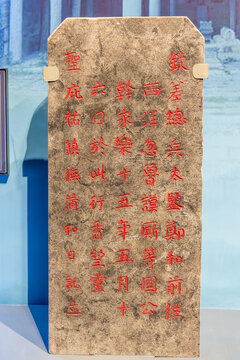 欽差總兵太監鄭和前往
西洋忽魯謨厮等國公
幹永樂十五年五月十
六日於此行香望靈
聖庇佑鎮撫蒲和日記立